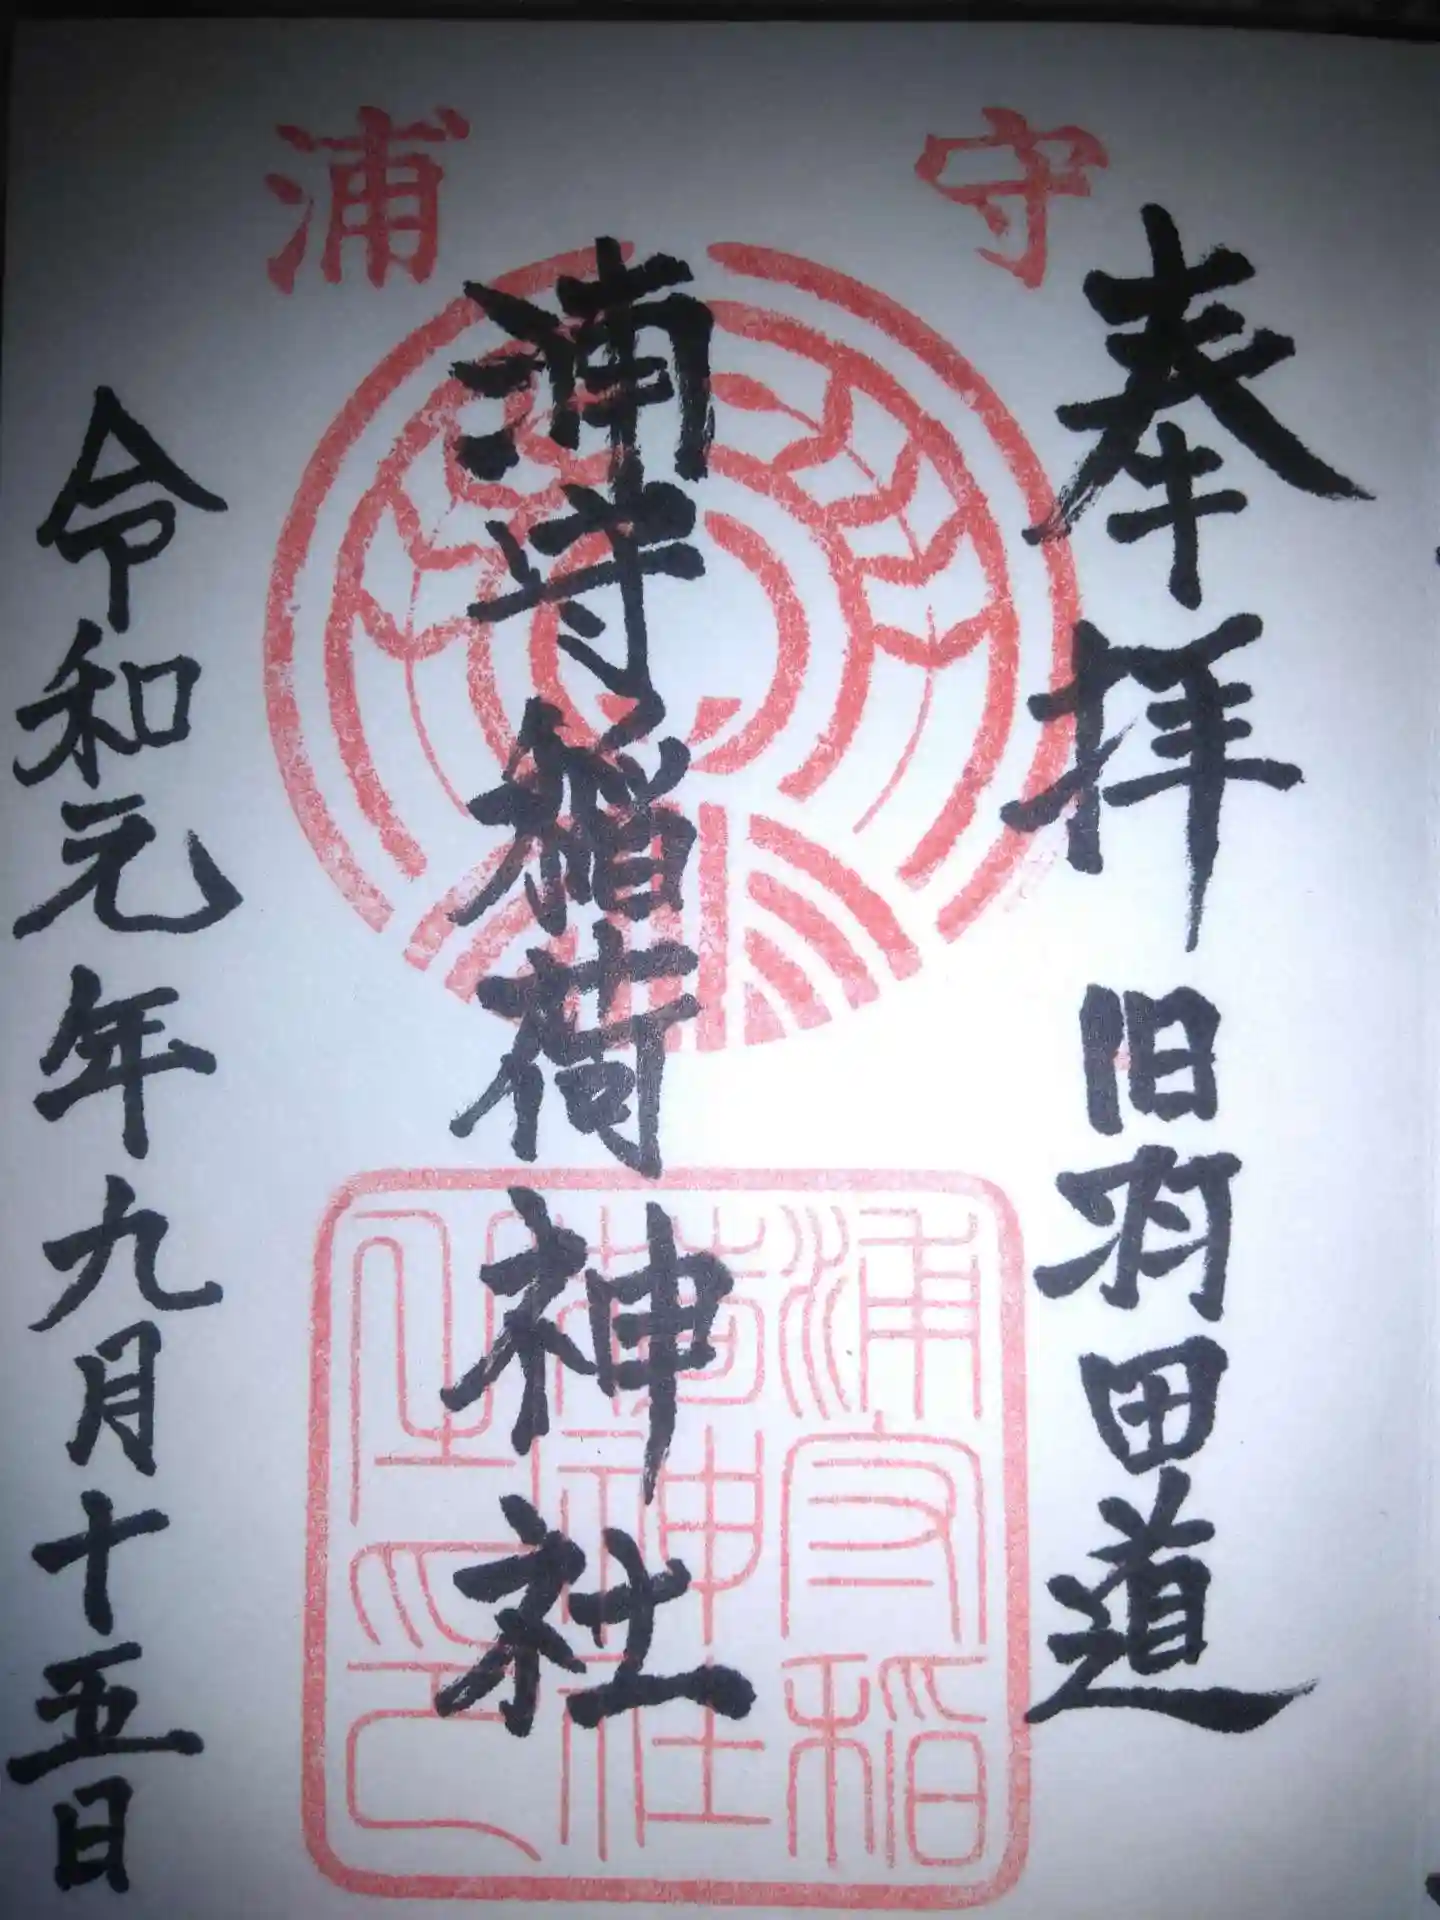 守
浦
奉拝 旧羽田道
浦守稲荷神社
浦守稲
荷神社
之印
令和元年九月十五日